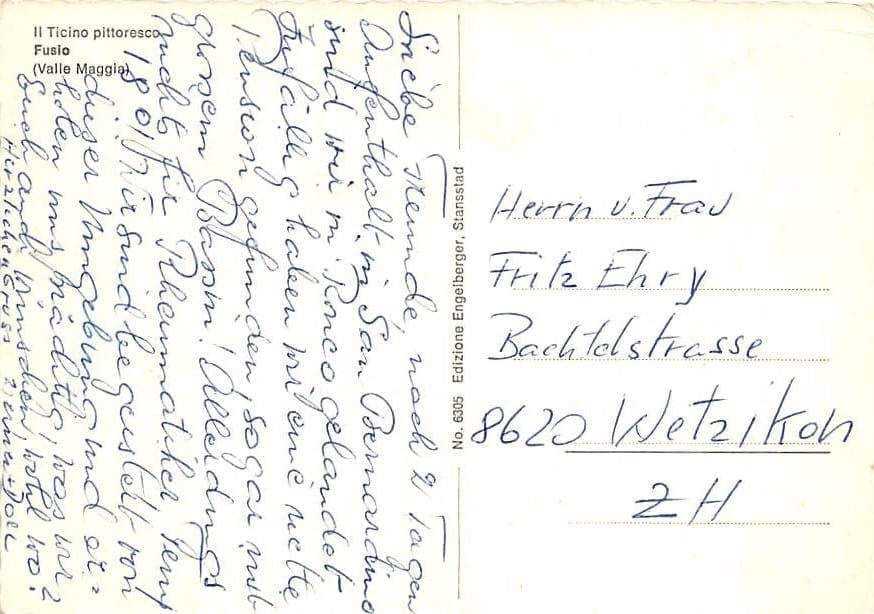 Il Ticino pittoresco
Fusio
(Valle Maggia)
Liebe Freunde, nach 2 Tagen
Aufenthalt in San Bernardino
sind wir in Ronco gelandet
Zufällig haben wir eine nette
Pension gefunden, sogar mit
grossem Bassin! Allerdings
nicht für Rheumatiker, Temp
18°! Wir sind begeistert von
dieser Umgebung und er-
holen uns prächtig was wir
Euch auch wünschen,
Herzlichen Gruss
No. 6305 Edizione Engelberger, Stansstad
Herrn u. Frau
Fritz Ehry
Bachtelstrasse
8620 Wetzikon
ZH